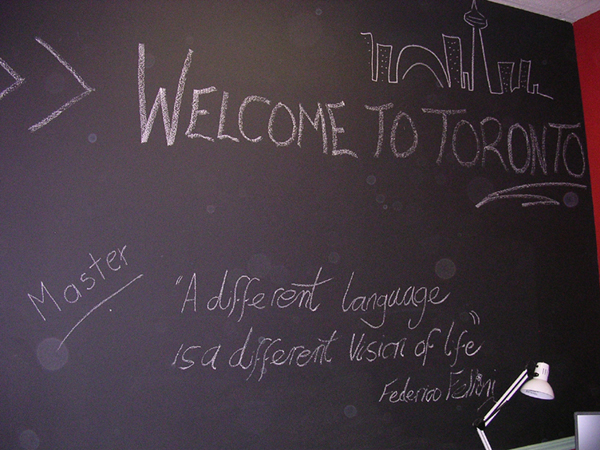 WELCOME TO TORONTO
Master
"A different language
is a different Vision of life"
Federico Fellini